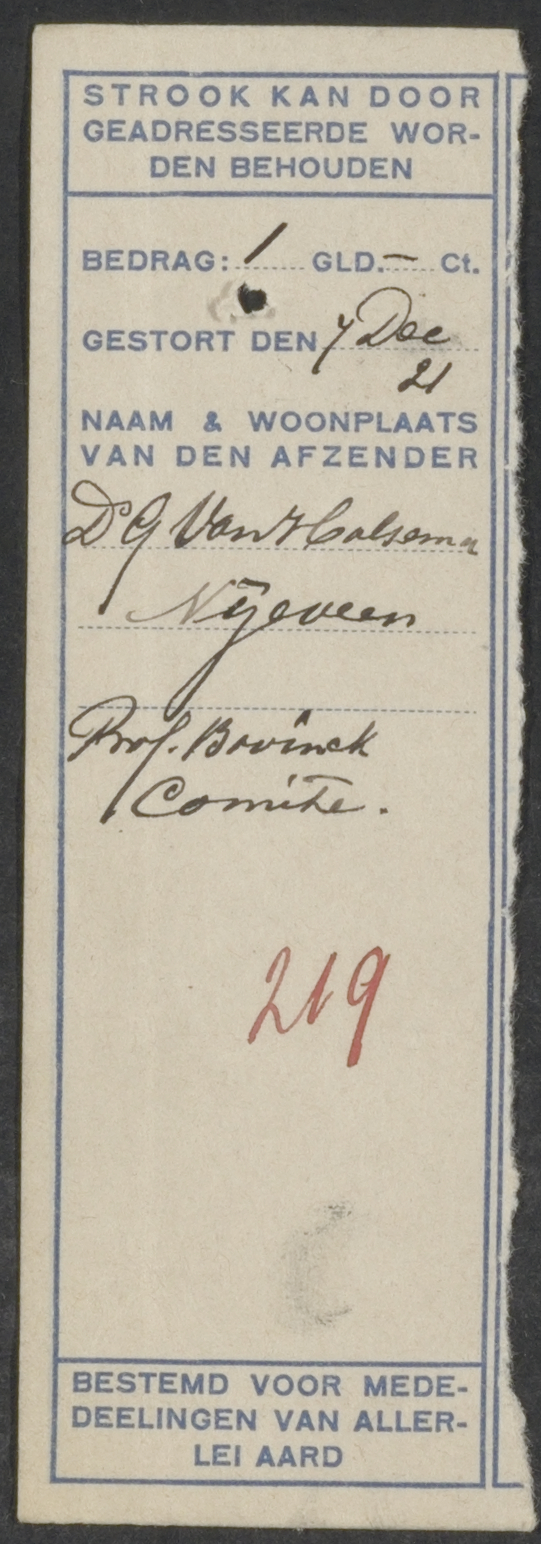 STROOK KAN DOOR
GEADRESSEERDE WOR-
DEN BEHOUDEN
BEDRAG: 1 GLD. - Ct.
GESTORT DEN 7 Dec
21
NAAM & WOONPLAATS
VAN DEN AFZENDER
Ds G Van Halsema
Nijeveen
Prof. Bavinck
Comité.
219
BESTEMD VOOR MEDE-
DEELINGEN VAN ALLER-
LEI AARD